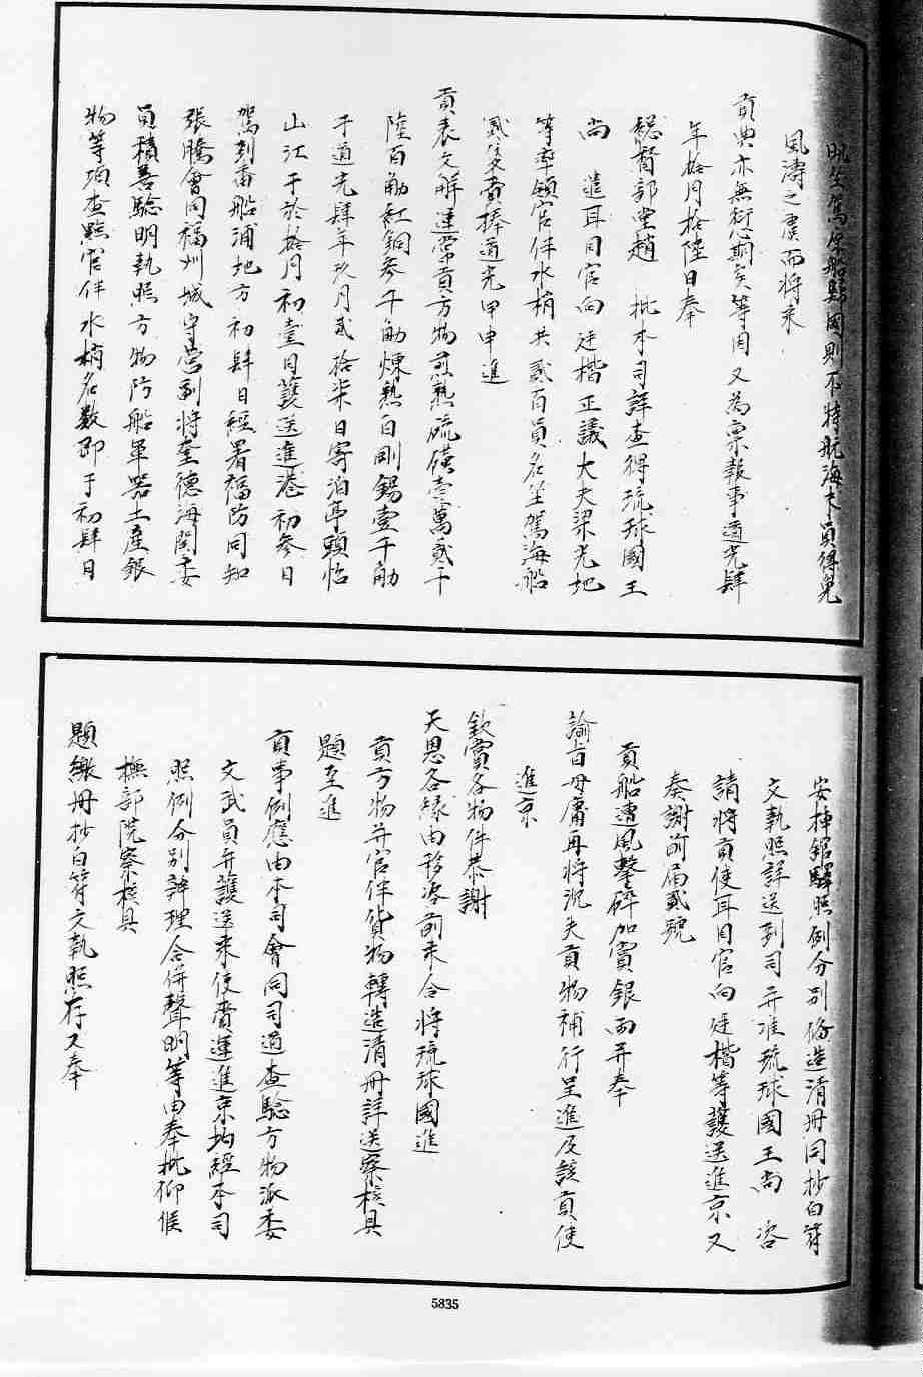 坐駕原船歸國則不特航海人員得免
風濤之虞而將來
貢典亦無愆期矣等因又為稟報事道光肆
年拾月拾陸日奉
總督部堂趙 批本司詳查得琉球國王
尚 遣耳目官向廷楷正議大夫梁光地
等率領官伴水梢共貳百員名坐駕海船
貳隻賫捧道光甲申進
貢表文解運常貢方物煎熟硫磺壹萬貳千
陸百觔紅銅參千觔煉熟白剛錫壹千觔
于道光肆年玖月貳拾柒日寄泊亭頭怡
山江于於拾月初壹日護送進港初參日
駕到番船浦地方初肆日經署福防同知
張騰會同福州城守營副將 德海關委
員積善驗明執照方物防船軍器土產銀
物等項查點官伴水梢名數即于初肆日
安插館驛照例分別備造清冊同抄白符
文執照詳送到司并准琉球國王尚 咨
請將貢使耳目官向廷楷等護送進京又
奏謝前屆貳號
貢船遭風擊碎加賞銀兩并奉
諭旨毋庸再將沉失貢物補行呈進及該貢使
進京
欽賞各物件恭謝
天恩各緣由移咨前來合將琉球國進
貢方物并官伴貨物轉造清冊詳送察核具
題至進
貢事例應由本司會同司道查驗方物派委
文武員弁護送來使賫運進京均經本司
照例分別辦理合併聲明等由奉批仰候
撫部院察核具
題繳冊抄白符文執照存又奉
5835